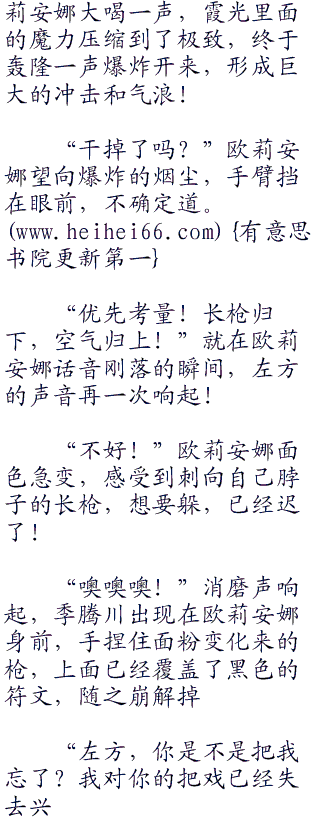 莉安娜大喝一声，霞光里面
的魔力压缩到了极致，终于
轰隆一声爆炸开来，形成巨
大的冲击和气浪！
“干掉了吗？”欧莉安
娜望向爆炸的烟尘，手臂挡
在眼前，不确定道。
(www.heihei66.com) {有意思
书院更新第一}
“优先考量！长枪归
下，空气归上！”就在欧莉
安娜话音刚落的瞬间，左方
的声音再一次响起！
“不好！”欧莉安娜面
色急变，感受到刺向自己脖
子的长枪，想要躲，已经迟
了！
“噢噢噢！”消磨声响
起，季腾川出现在欧莉安娜
身前，手捏住面粉变化来的
枪，上面已经覆盖了黑色的
符文，随之崩解掉
“左方，你是不是把我
忘了？我对你的把戏已经失
去兴